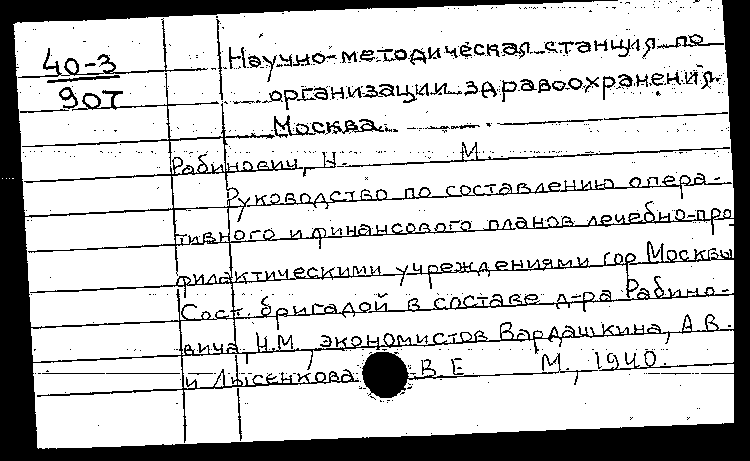 40-3
907
Научно-методическая станция по
организации здравоохранения.
Москва.
Рабинович, Н. М.
Руководство по составлению опера-
тивного и финансового планов лечебно-про
филактическими учреждениями гор Москвы
Сост. бригадой в составе д-ра Рабино-
вича, Н.М., экономистов Вардашкина, А.В.
и Лысенкова В.Е М., 1940.